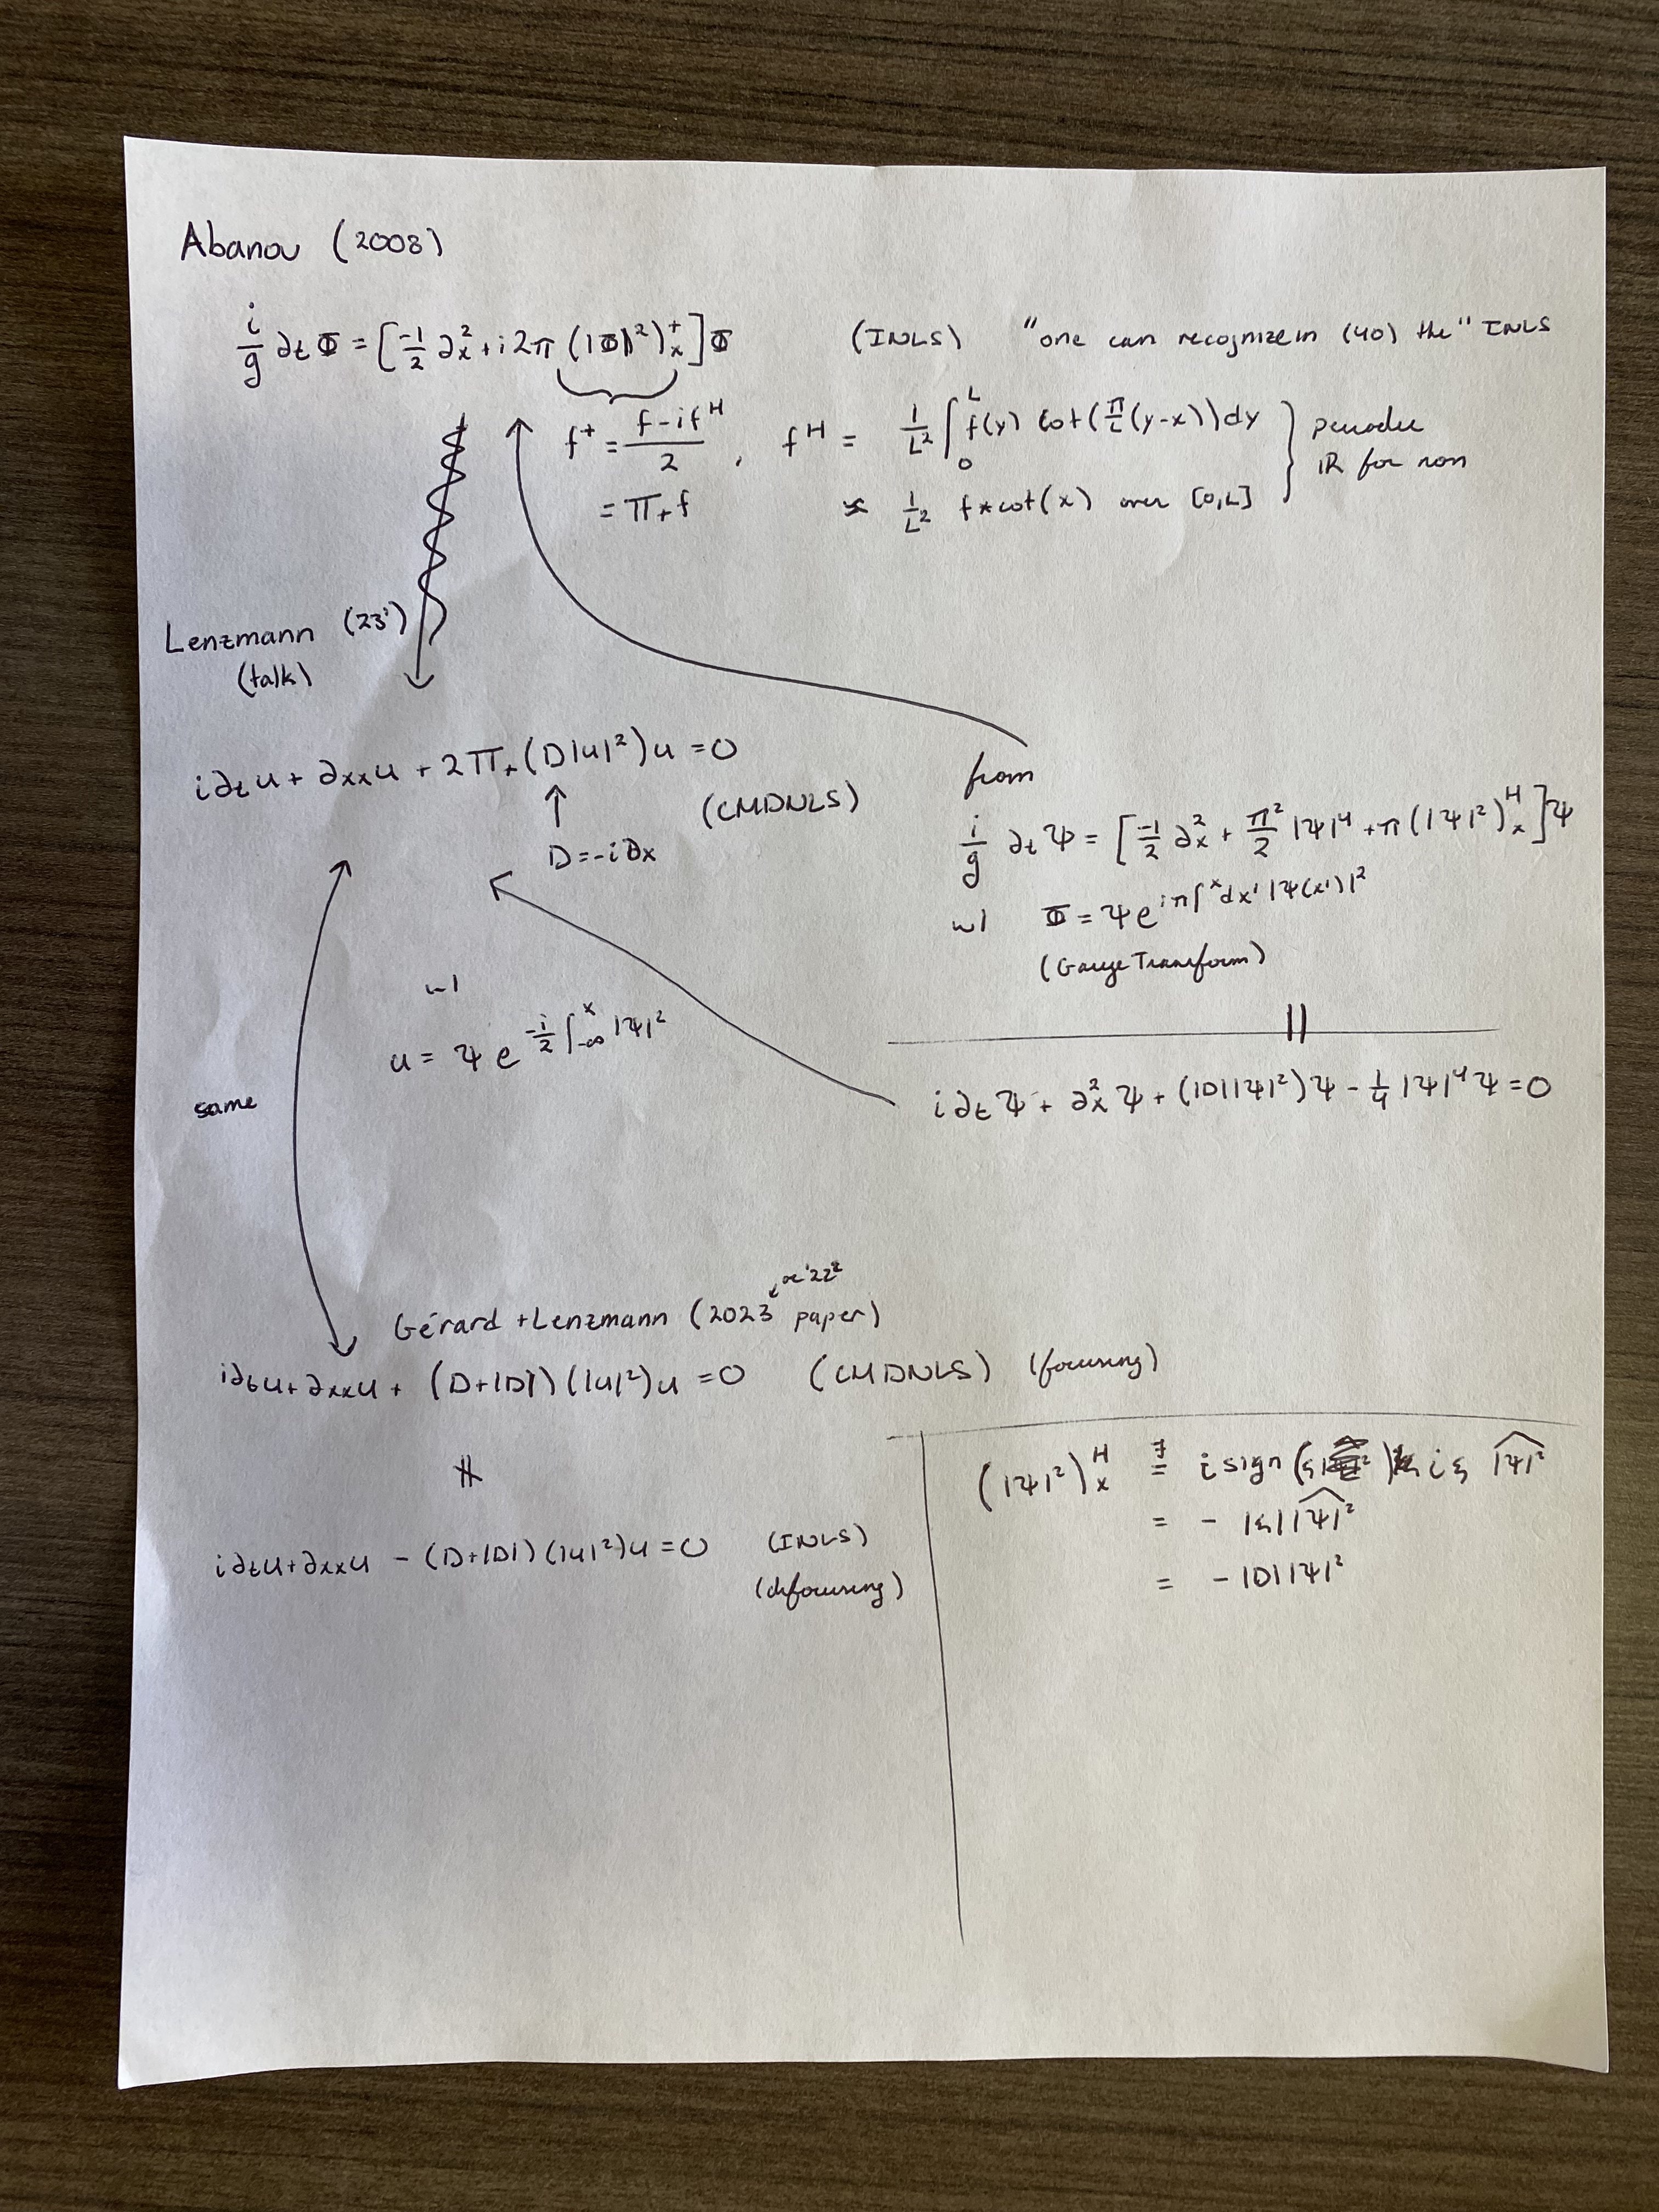 Abanov (2008)
i/g ∂t Φ = [-1/2 ∂x² + i 2π (|Φ|²)x⁺] Φ (INLS) "one can recognize in (40) the" INLS
f⁺ = (f - i f^H)/2 , f^H = 1/L² ∫₀^L f(y) cot(π/L (y-x)) dy } periodic
= Π₊f ≈ 1/L² f * cot(x) over [0,L] ℝ for non
Lenzmann (23')
(talk)
i∂t u + ∂xx u + 2Π₊(D|u|²)u = 0
(CMDNLS)
↑
D = -i∂x
from
i/g ∂t Ψ = [-1/2 ∂x² + π²/2 |Ψ|⁴ + π(|Ψ|²)x^H] Ψ
w/ Φ = Ψ e^{iπ∫^x dx' |Ψ(x')|²}
(Gauge Transform)
w/
u = Ψ e^{-i/2 ∫_{-∞}^x |Ψ|²}
||
same
i∂t Ψ + ∂x² Ψ + (|D||Ψ|²)Ψ - 1/4 |Ψ|⁴ Ψ = 0
Gérard + Lenzmann (2023 paper)
i∂t u + ∂xx u + (D+|D|)(|u|²)u = 0 (CMDNLS) (focusing)
∦
i∂t u + ∂xx u - (D+|D|)(|u|²)u = 0 (INLS)
(defocusing)
(|Ψ|²)x^H =^F i sign(ξ) iξ \widehat{|Ψ|²}
= - |ξ| \widehat{|Ψ|²}
= - |D||Ψ|²